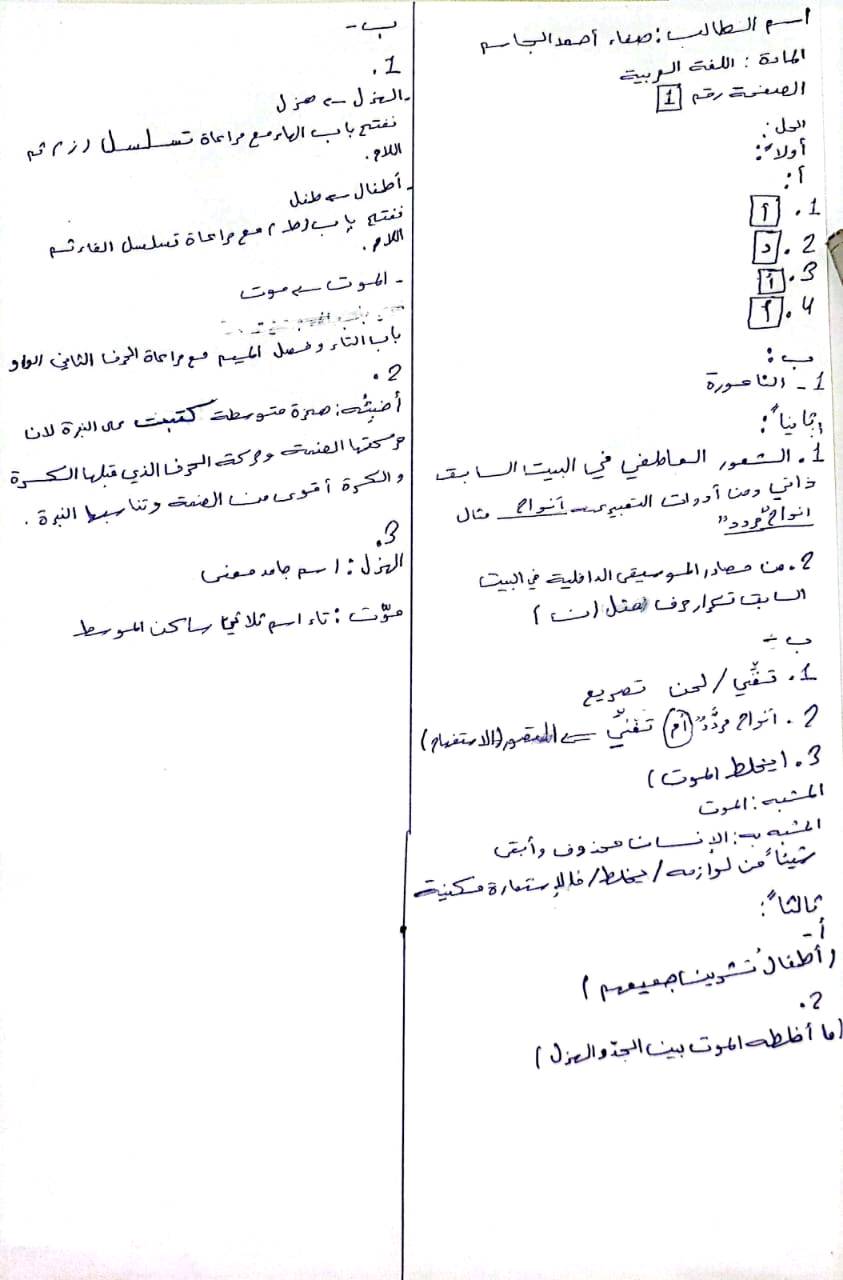 اسم الطالب: صفاء أحمد الجاسم
المادة: اللغة العربية
الصفحة رقم 1
الحل:
أولاً:
أ:
1. أ
2. د
3. أ
4. أ
ب:
1 - الناعورة
ثانياً:
1. الشعور العاطفي في البيت السابق
ذاتي ومن أدوات التعبير أنواح مثال
انواح "مردد"
2. من مصادر الموسيقى الداخلية في البيت
السابق تكرار حرف مثل (ن)
ب -
1. تغنّي / لحن تصريع
2. أنواح مردَّدٌ أم تغنّي المقصور (الاستفهام)
3. (يخلط الموت)
المشبه: الموت
المشبه به: الإنسان محذوف وأبقى
شيئاً من لوازمه / يخلط / فالإستعارة مكنية
ثالثاً:
أ -
(أطفالُ تشرين جميعهم)
2.
(ما أخلطه الموت بين الجدّ والهزل)
ب -
1.
- الهزل ← هزل
نفتح باب الهاء مع مراعاة تسلسل (ز) ثم
اللام.
- أطفال ← طفل
نفتح باب (ط) مع مراعاة تسلسل الفاء ثم
اللام.
- الموت ← موت
باب التاء وفصل الميم مع مراعاة الحرف الثاني الواو
2.
همزة متوسطة كتبت على النبرة لان
حركتها الضمة وحركة الحرف الذي قبلها الكسرة
والكسرة أقوى من الضمة وتناسبها النبرة.
3.
الهزل: اسم جامد معنى
موّت: تاء اسم ثلاثي ساكن الوسط